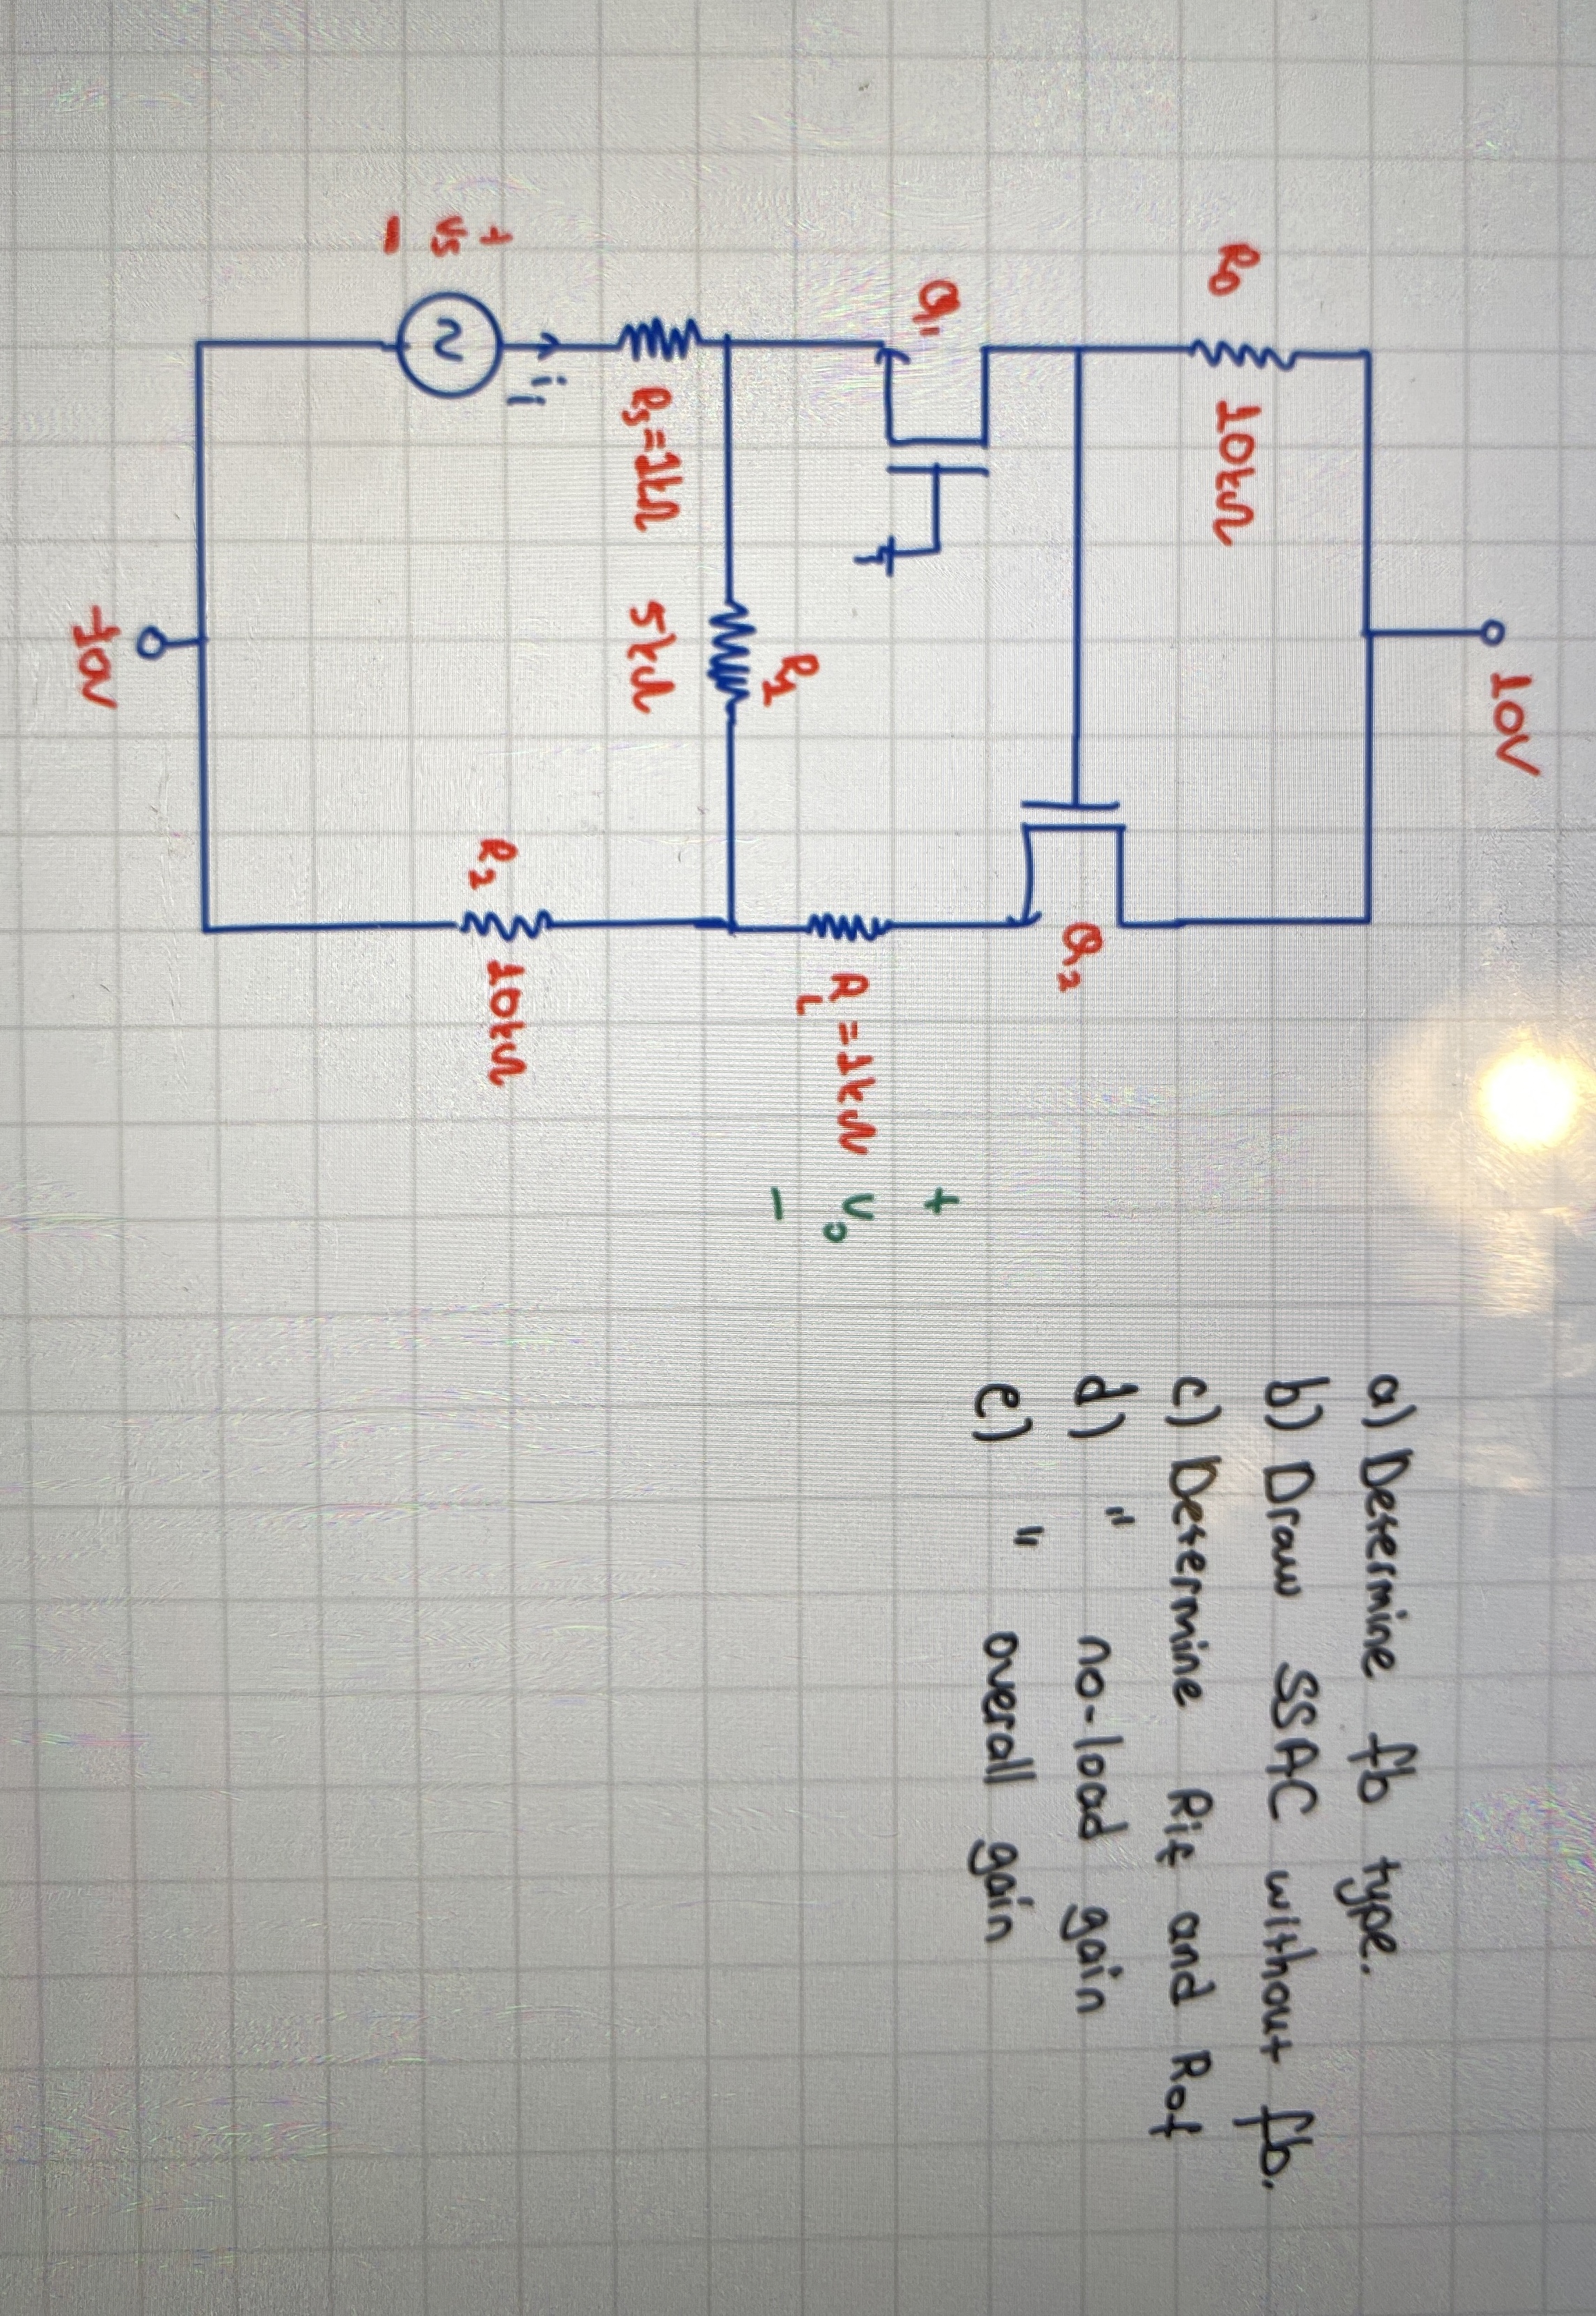 10V
RD
10kΩ
Q1
Q2
RL = 1kΩ
+
vo
-
R1
5kΩ
Rs = 1kΩ
ii
+
vs
-
R2
10kΩ
-10V
a) Determine fb type.
b) Draw SSAC without fb.
c) Determine Rif and Rof
d) " no-load gain
e) " overall gain